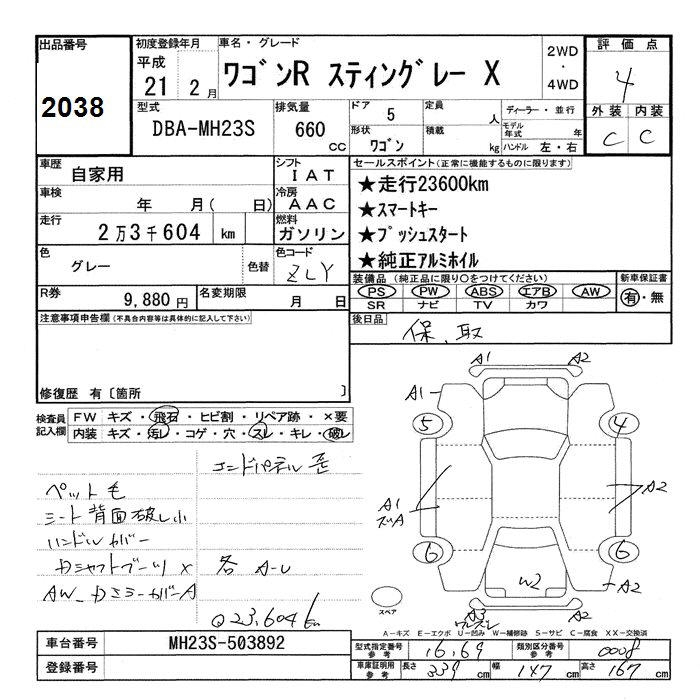 出品番号
2038
初度登録年月
平成
21 年 2 月
車名・グレード
ワゴンR スティングレー X
2WD
・
4WD
評価点
4
外装 内装
C C
型式
DBA-MH23S
排気量
660 cc
ドア 5
形状 ワゴン
定員 人
積載 kg
ディーラー・並行
モデル年式 年
ハンドル 左・右
車歴
自家用
シフト
IAT
車検
年 月( 日)
冷房
AAC
走行
2万3千604 km
燃料
ガソリン
色
グレー
色替
色コード
ZLY
R券
9,880 円
名変期限
月 日
セールスポイント(正常に機能するものに限ります)
★走行23600km
★スマートキー
★プッシュスタート
★純正アルミホイル
装備品 (純正品に限り○をつけてください)
PS PW ABS エアB AW
SR ナビ TV カワ
新車保証書
有・無
後日品
保、取
注意事項申告欄(不具合内容等は具体的に記入して下さい)
修復歴 有〔箇所 〕
検査員記入欄
FW キズ・飛石・ヒビ割・リペア跡・×要
内装 キズ・汚レ・コゲ・穴・スレ・キレ・破レ
エンドパネル歪
ペット毛
シート背面破レ小
ハンドルカバー
各 A-U
Q23,604km
A1 A2
A1
5 4
A1
A2
6 6
W2
A2
A3
A2
スペア
A-キズ E-エクボ U-凹み W-補修跡 S-サビ C-腐食 XX-交換済
車台番号
MH23S-503892
登録番号
型式指定番号 参考 16,69
類別区分番号 参考 0008
車庫証明用 参考 長さ 339 cm 幅 147 cm 高さ 167 cm